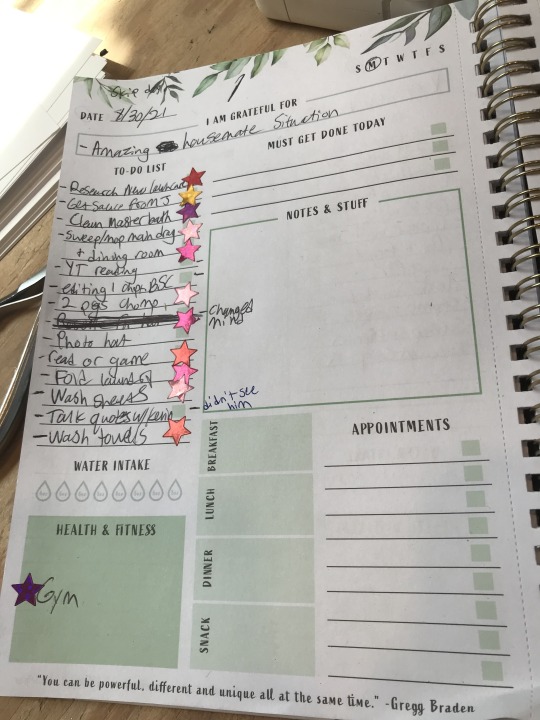 S M T W T F S
DATE 8/30/21
I AM GRATEFUL FOR
- Amazing housemate Situation
MUST GET DONE TODAY
TO-DO LIST
- Research New
- Get Sauce from J
- Clean Master bath
- Sweep/mop main drag
+ dining room
- YT reading
- editing 1 chpt BSC
- 2 pgs chomp
- Changed Mind
- Photo hat
- read or game
- Fold laundry
- Wash sheets
- Talk quotes w/
- didn't see him
- Wash towels
NOTES & STUFF
WATER INTAKE
HEALTH & FITNESS
Gym
BREAKFAST
LUNCH
DINNER
SNACK
APPOINTMENTS
"You can be powerful, different and unique all at the same time." -Gregg Braden